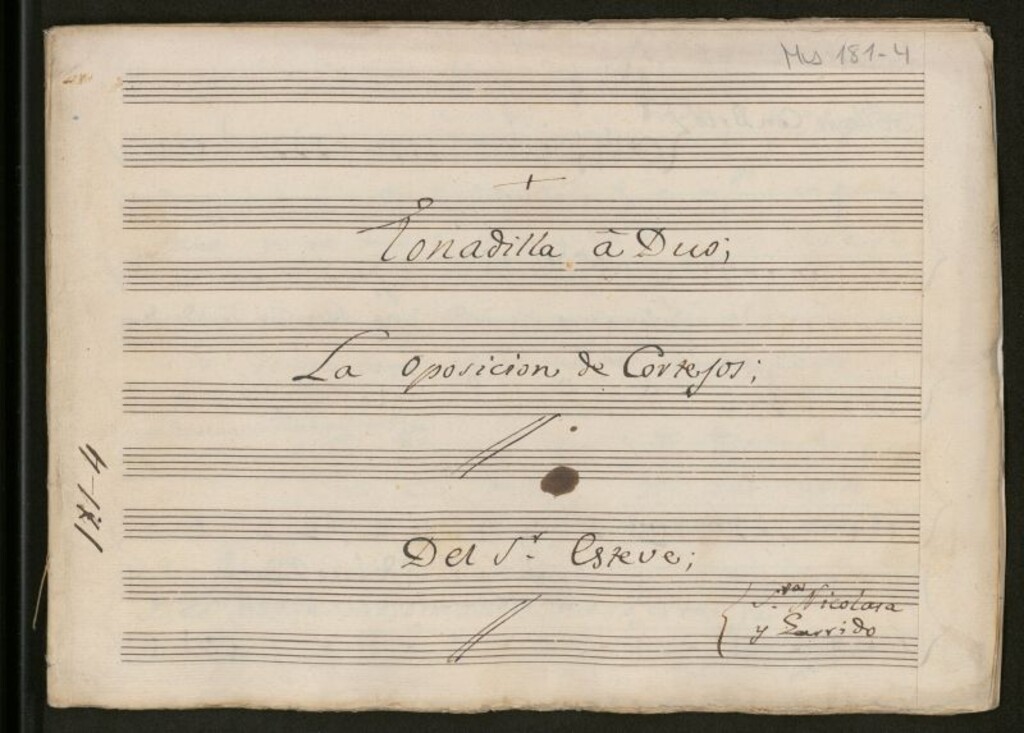 Mus 181-4
+
Tonadilla â Duo;
La oposicion de Cortejos;
Del S.r Esteve;
S.ra Nicolasa
y Garrido
181-4